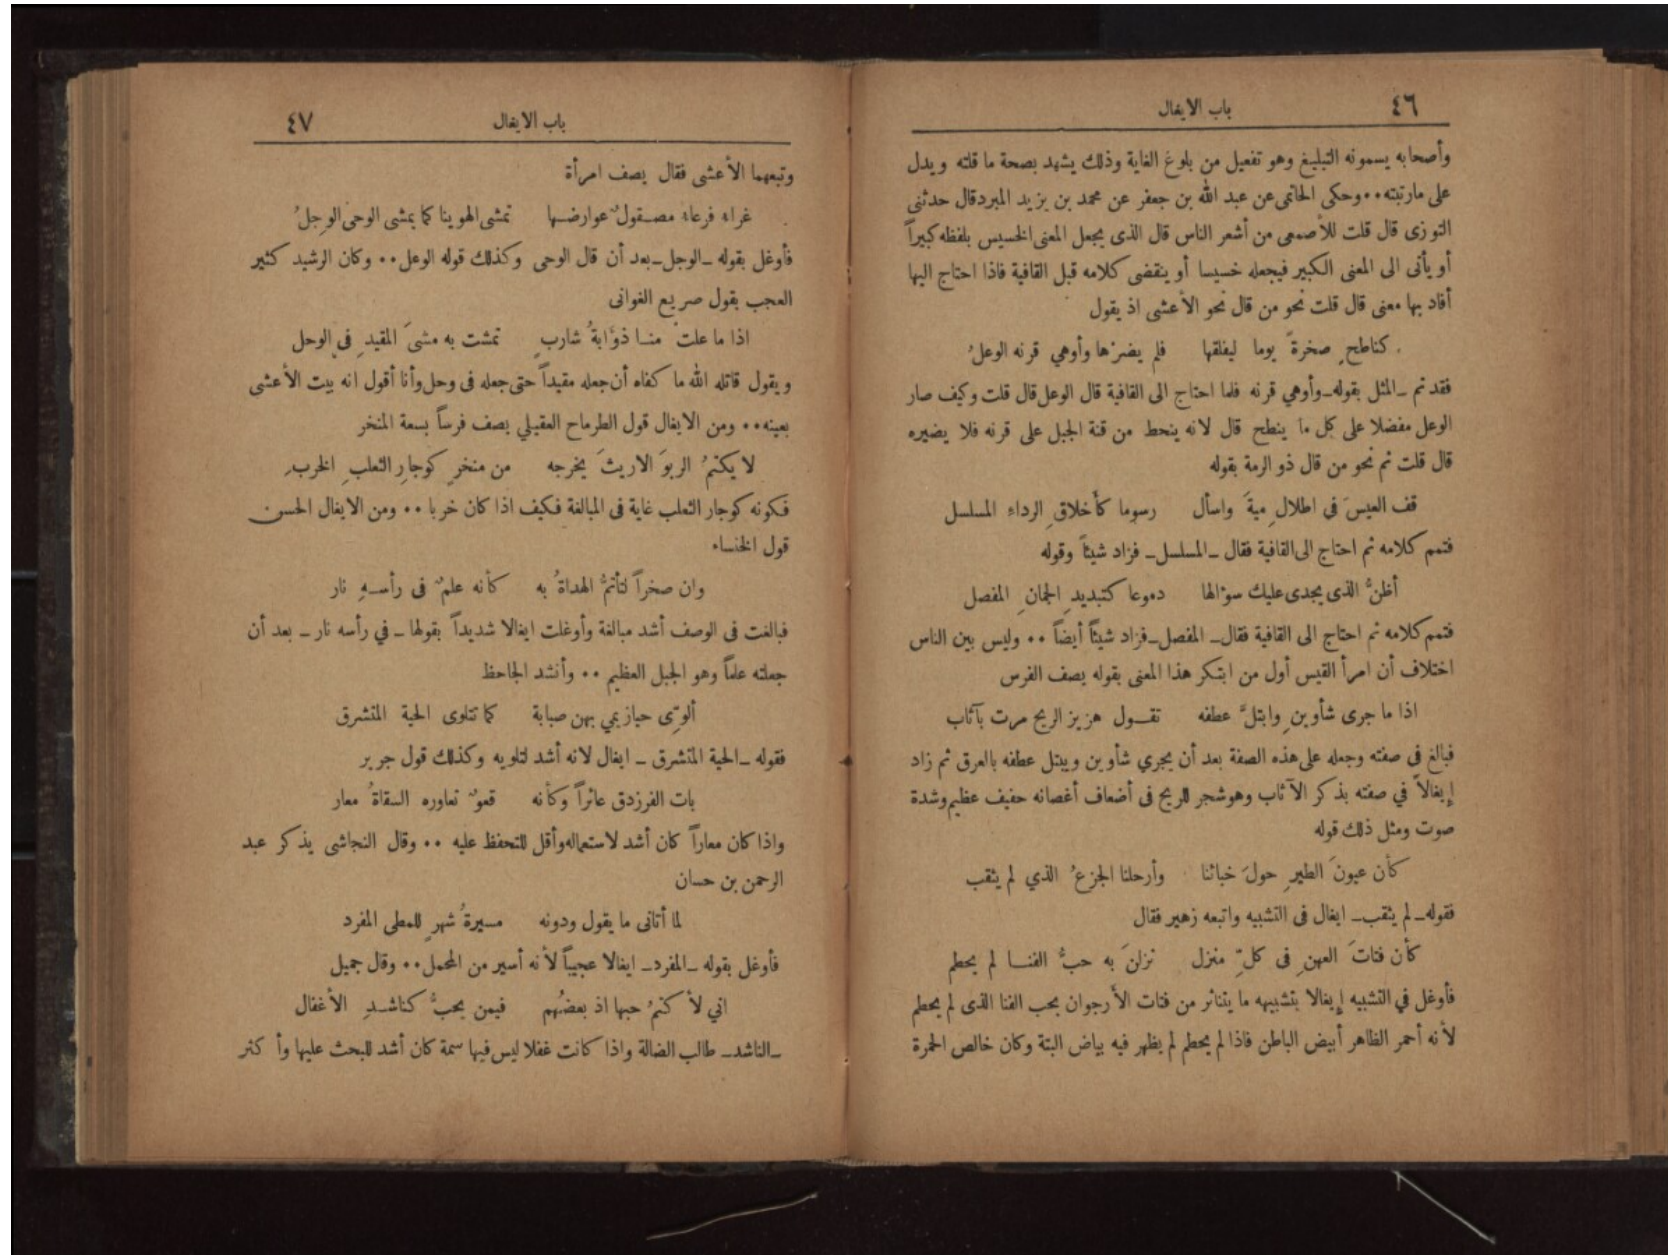 ٤٦
باب الايغال
وأصحابه يسمونه التبليغ وهو تفعيل من بلوغ الغاية وذلك يشهد بصحة ما قلته ويدل
على مارتبته٠٠وحكى الحاتمى عن عبد الله بن جعفر عن محمد بن يزيد المبرد قال حدثنى
التوزى قال قلت للأصمعى من أشعر الناس قال الذى يجعل المعنى الخسيس بلفظه كبيراً
أو يأتى الى المعنى الكبير فيجعله خسيسا أو ينقضى كلامه قبل القافية فاذا احتاج اليها
أفاد بها معنى قال قلت نحو من قال نحو الأعشى اذ يقول
كناطحٍ صخرةً يوما ليفلقها فلم يضرْها وأوهي قرنه الوعلُ
فقد تم ـ المثل بقوله ـ وأوهي قرنه فلما احتاج الى القافية قال الوعل قال قلت وكيف صار
الوعل مفضلا على كل ما ينطح قال لانه ينحط من قنة الجبل على قرنه فلا يضيره
قال قلت ثم نحو من قال ذو الرمة بقوله
قف العيسَ في اطلالِ ميةَ واسأل رسوما كأخلاقِ الرداءِ المسلسل
فتمم كلامه ثم احتاج الى القافية فقال ـ المسلسل ـ فزاد شيئاً وقوله
أظنُّ الذى يجدى عليك سؤالها دموعا كتبديدِ الجمانِ المفصل
فتمم كلامه ثم احتاج الى القافية فقال ـ المفصل ـ فزاد شيئاً أيضاً ٠٠ وليس بين الناس
اختلاف أن امرأ القيس أول من ابتكر هذا المعنى بقوله يصف الفرس
اذا ما جرى شأوينِ وابتلَّ عطفه تقـول هزيز الريح مرت بآثاب
فبالغ في صفته وجعله على هذه الصفة بعد أن يجري شأوين ويبتل عطفه بالعرق ثم زاد
إيغالاً في صفته بذكر الآثاب وهو شجر للريح فى أضعاف أغصانه حفيف عظيم وشدة
صوت ومثل ذلك قوله
كأن عيونَ الطيرِ حولَ خبائنا وأرحلنا الجزعُ الذي لم يثقب
فقوله ـ لم يثقب ـ ايغال فى التشبيه واتبعه زهير فقال
كأن فتاتَ العهنِ فى كلِّ منزل نزلنَ به حبُّ الفنـا لم يحطم
فأوغل في التشبيه إيغالا بتشبيهه ما يتناثر من فتات الأرجوان بحب الفنا الذى لم يحطم
لأنه أحمر الظاهر أبيض الباطن فاذا لم يحطم لم يظهر فيه بياض البتة وكان خالص الحمرة
باب الايغال
٤٧
وتبعهما الأعشى فقال يصف امرأة
غراء فرعاء مصـقولٌ عوارضـها تمشى الهوينا كما يمشى الوحى الوجِلُ
فأوغل بقوله ـ الوجل ـ بعد أن قال الوحى وكذلك قوله الوعل٠٠ وكان الرشيد كثير
العجب بقول صريع الغوانى
اذا ما علتْ منـا ذؤابةُ شاربٍ تمشت به مشىَ المقيدِ في الوحل
ويقول قاتله الله ما كفاه أن جعله مقيداً حتى جعله فى وحل وأنا أقول انه بيت الأعشى
بعينه٠٠ ومن الايغال قول الطرماح العقيلي يصف فرساً بسعة المنخر
لا يكتمُ الربوَ الاريثَ يخرجه من منخرٍ كوجارِ الثعلبِ الخرب
فكونه كوجار الثعلب غاية فى المبالغة فكيف اذا كان خربا ٠٠ ومن الايغال الحسن
قول الخنساء
وان صخراً لتأتمُّ الهداةُ به كأنه علمٌ فى رأسـهِ نار
فبالغت فى الوصف أشد مبالغة وأوغلت ايغالا شديداً بقولها ـ في رأسه نار ـ بعد أن
جعلته علماً وهو الجبل العظيم ٠٠ وأنشد الجاحظ
ألوّى حيازيمي بهن صبابة كما تتلوى الحية المتشرق
فقوله ـ الحية المتشرق ـ ايغال لانه أشد لتلويه وكذلك قول جرير
بات الفرزدق عائراً وكأنه قعوٌ تعاوره السقاةُ معار
واذا كان معاراً كان أشد لاستعماله وأقل للتحفظ عليه ٠٠ وقال النجاشى يذكر عبد
الرحمن بن حسان
لما أتانى ما يقول ودونه مسيرةُ شهرٍ للمطى المفرد
فأوغل بقوله ـ المفرد ـ ايغالا عجيباً لأنه أسير من المحمل٠٠ وقال جميل
اني لأكتمُ حبها اذ بعضُهم فيمن يحبُّ كناشـدِ الأغفال
ـ الناشد ـ طالب الضالة واذا كانت غفلا ليس فيها سمة كان أشد للبحث عليها وأكثر